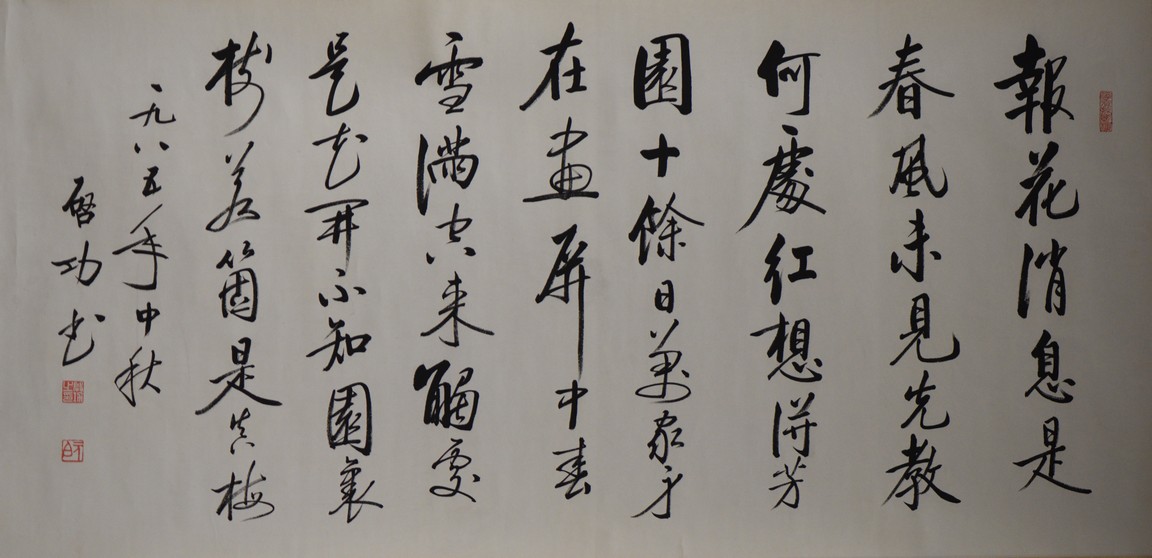 報花消息是
春風未見先教
何處紅想得芳
園十餘日萬家身
在畫屏中春
雪滿空来觸處
是花開不知園裏
樹若箇是真梅
一九八五年中秋
啓功书